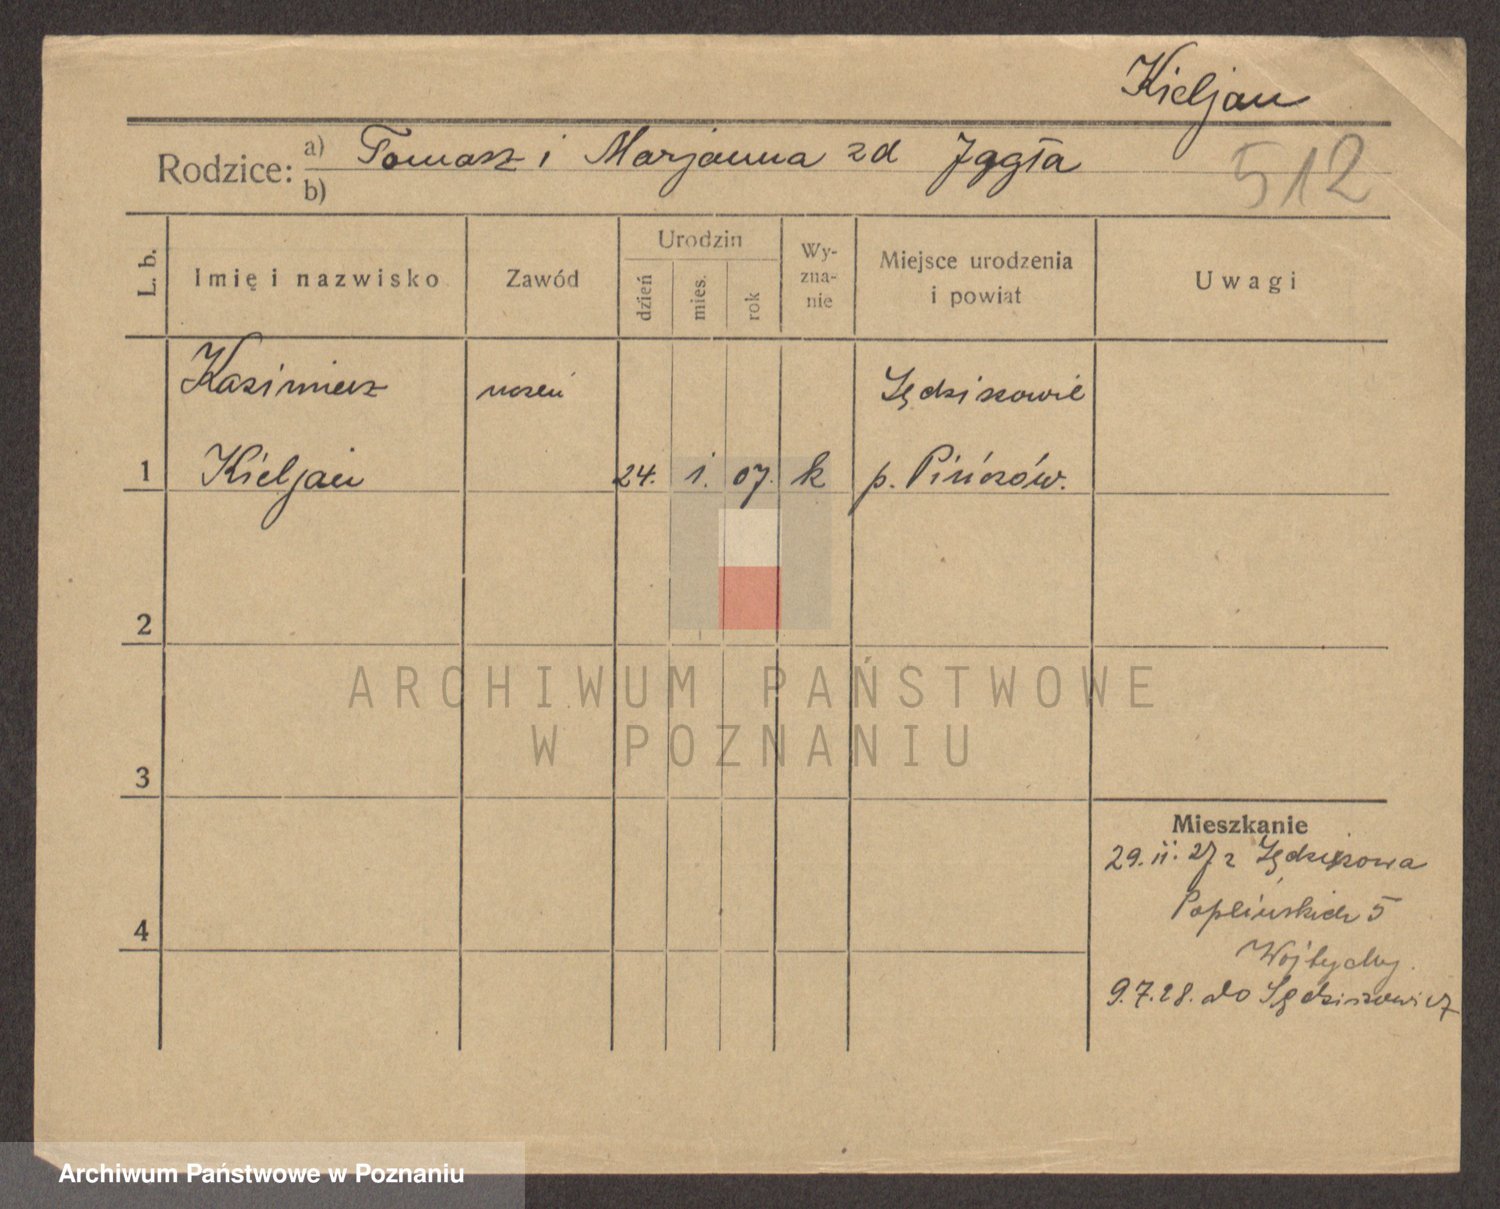 Kieljan
Rodzice: a) Tomasz i Marjanna zd Jągła
b)
512
L. b.
Imię i nazwisko
Zawód
Urodzin
dzień
mies.
rok
Wy-
zna-
nie
Miejsce urodzenia
i powiat
Uwagi
Kazimierz
uczeń
1
Kieljan
24. i. 07. k
p. Pińczów.
2
3
4
Mieszkanie
29. ii. 27 z
Poplińskich 5
9.7.28. do
ARCHIWUM PAŃSTWOWE
W POZNANIU
Archiwum Państwowe w Poznaniu